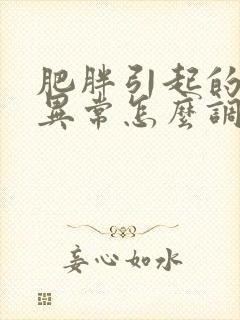 肥胖引起的
異常怎麼調
妾心如水